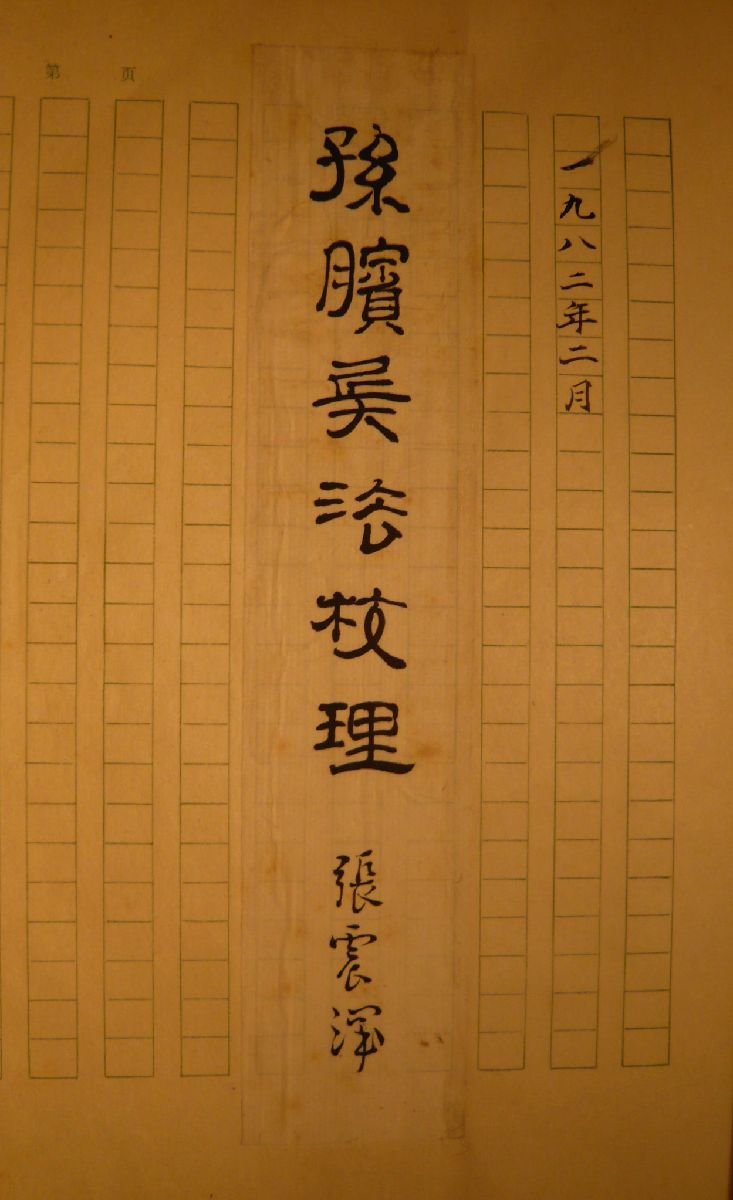 一九八二年二月
孫臏兵法校理
張震澤
第 页